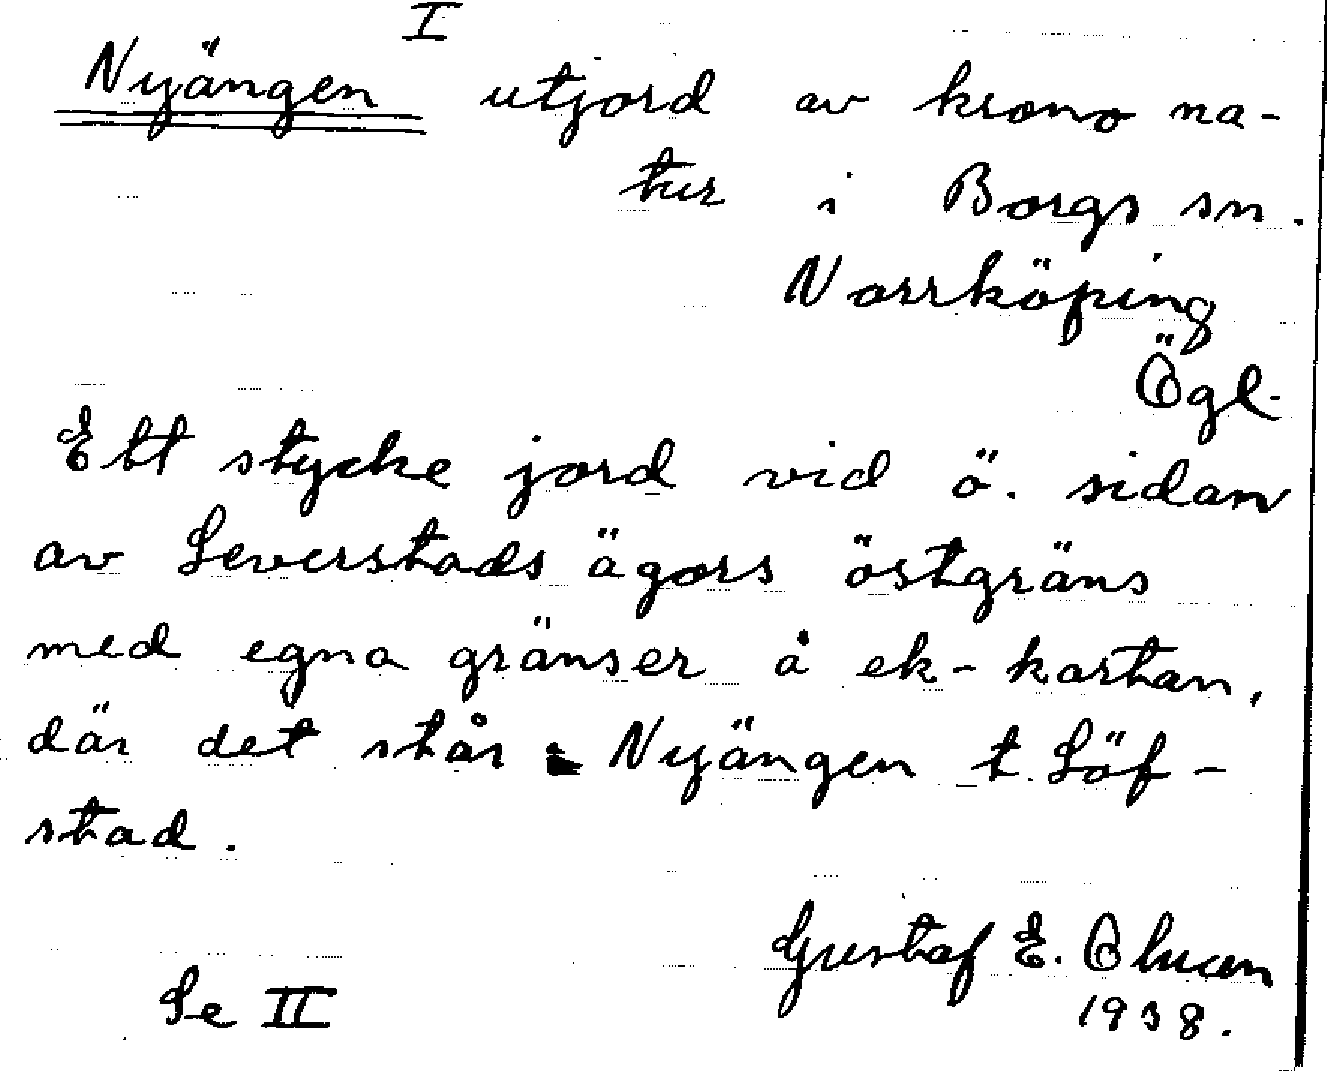 I
Nyängen utjord av krono na-
tur i Borgs sn.
Norrköping
Ögl.
Ett stycke jord vid ö. sidan
av Leverstads ägors östgräns
med egna gränser å ek-kartan,
där det står Nyängen t. Löf-
stad.
Gustaf E. Olucen
Se II
1938.